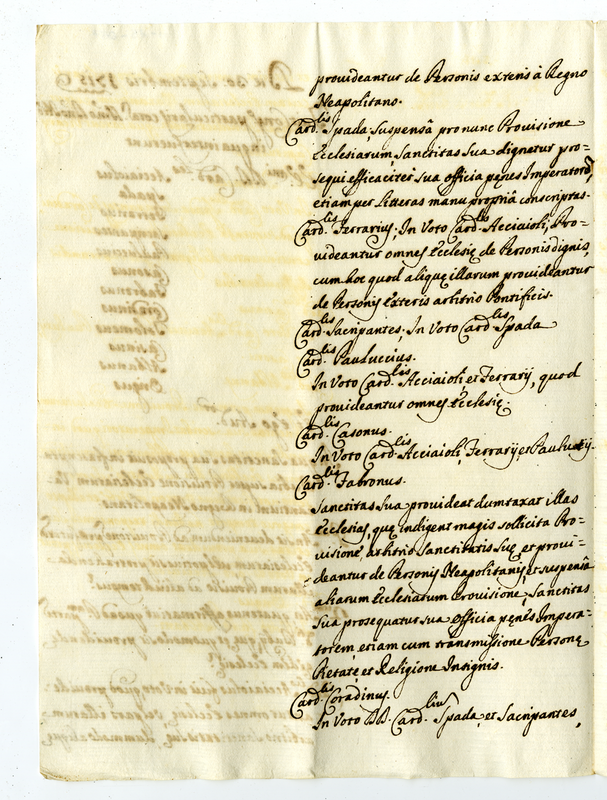 prouideantur de Personis exteris à Regno
Neapolitano.
Card.lis Spada, suspensâ pro nunc Prouisione
Ecclesiarum, Sanctitas Sua dignetur pro=
sequi efficaciter sua officia penes Imperatorẽ,
etiam per litteras manu propriâ conscriptas.
Card.lis Ferrarius, In Voto Card.lis Acciaioli, Pro=
uideantur omnes Ecclesię de Personis dignis,
cum hoc quod aliquę illarum prouideantur
de Personis Exteris arbitrio Pontificis.
Card.lis Sacripantes. In Voto Card.lis Spada
Card.lis Pauluccius.
In Voto Card.lis Acciaioli et Ferrarij, quod
prouideantur omnes Ecclesię
Card.lis Casonus.
In Voto Card.lis Acciaioli, Ferrarij, et Paulutij.
Card.lis Fabronus.
Sanctitas Sua prouideat dumtaxat illas
Ecclesias, quę indigent magis sollicita Pro=
uisione, arbitrio Sanctitatis Suę, et proui=
deantur de Personis Neapolitanis, et suspensâ
aliarum Ecclesiarum Prouisione, Sanctitas
Sua prosequatur sua officia penés Impera=
torem, etiam cum transmissione Personę
Pietate, et Religione Insignis.
Card.lis Coradinus.
In Voto DD. Card.lium Spada, et Sacripantes,